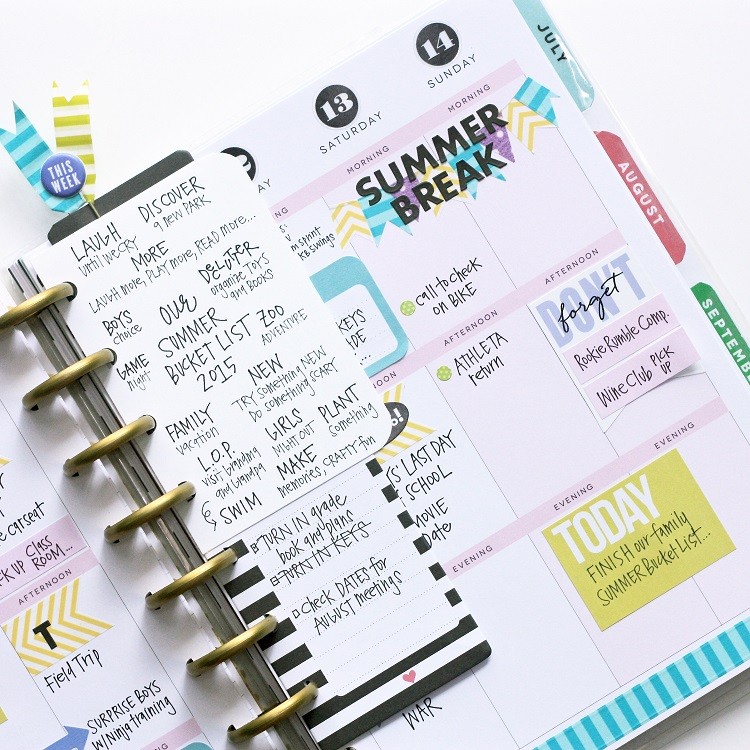 JULY
AUGUST
SEPTEMB
14
SUNDAY
13
SATURDAY
MORNING
MORNING
SUMMER
BREAK
THIS
WEEK
LAUGH
until we cry
DISCOVER
a new PARK
MORE
LAUGH more, PLAY more, READ more...
BOYS
choice
OUR
SUMMER
BUCKET LIST
2015
DeCLUTTER
organize TOYS
and BOOKS
ZOO
ADVENTURE
GAME
Night
NEW
TRY SOMEthing NEW
DO SOMEthing SCARY
FAMILY
vacation
GIRLS
NIGHT OUT
PLANT
something
L.O.P.
visit Grandma
and Grandpa
MAKE
memories, CRAFTY fun
& SWIM
TURN IN grade
book and plans
TURN IN KEYS
CHECK DATES for
AUGUST meetings
KB swings
KEYS
call to check
on BIKE
AFTERNOON
AFTERNOON
ATHLETA
return
DON'T
forget
Rookie Rumble Comp.
Wine Club PICK
UP
LAST DAY
SCHOOL
MOVIE
Date
EVENING
EVENING
EVENING
TODAY
FINISH our family
SUMMER Bucket List...
WAR
carseat
UP Class
ROOM...
AFTERNOON
T
Field Trip
SURPRISE BOYS
w/ Ninja training